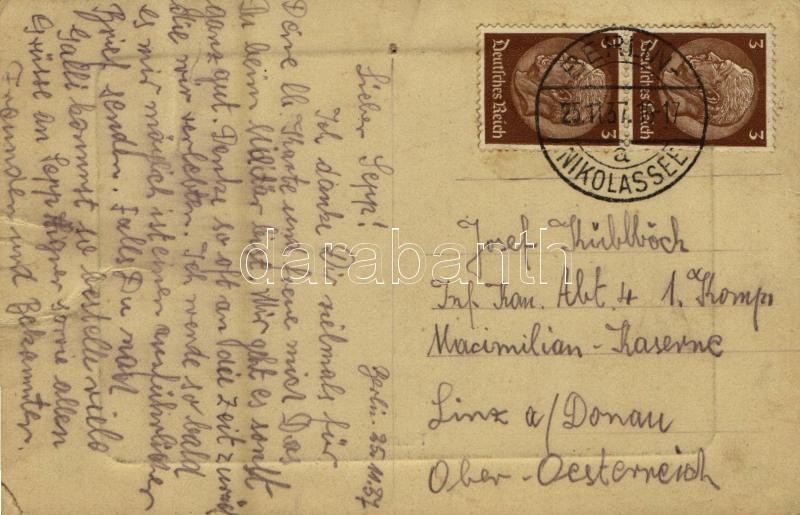 Berlin. 25.11.37
Lieber Sepp!
Ich danke Dir vielmals für
Deine lb. Karte und freue mich Das
Du beim Militär bist. Mir geht es sonst
ganz gut. Denke so oft an die Zeit zurück
die wir verlebten. Ich werde so bald
es mir möglich ist einen ausführlichen
Brief senden. Falls Du nach
Galli kommst so bestelle viele
Grüsse an Sepp sowie allen
Freunden und Bekannten.
Deutsches Reich
3
3
Deutsches Reich
3
3
BERLIN-
25.11.37.16-17
a
NIKOLASSEE
Josef Küblböck
Inf. Kan. Abt. 4 1. Komp
Macimilian-Kaserne
Linz a/Donau
Ober-Oesterreich
darabanth